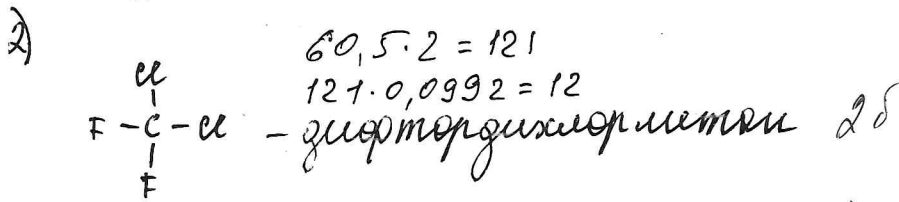 2)
60,5·2 = 121
121·0,0992 = 12
Cl
F – C – Cl – дифтордихлорметан 2б
F